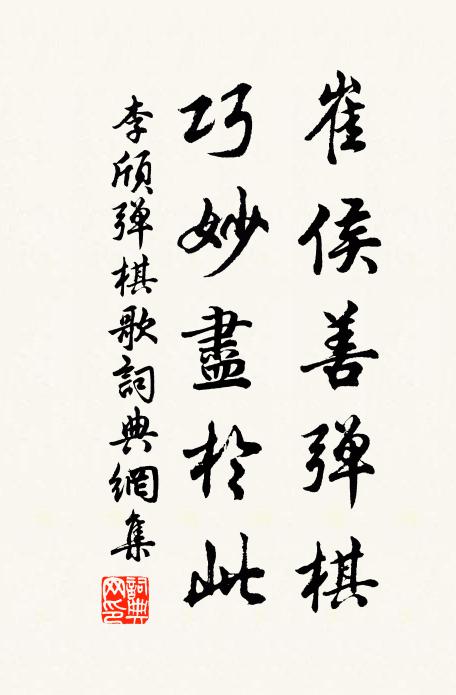 崔侯善弹棋
巧妙盡於此
李頎弹棋歌詞典網集
詞典网印